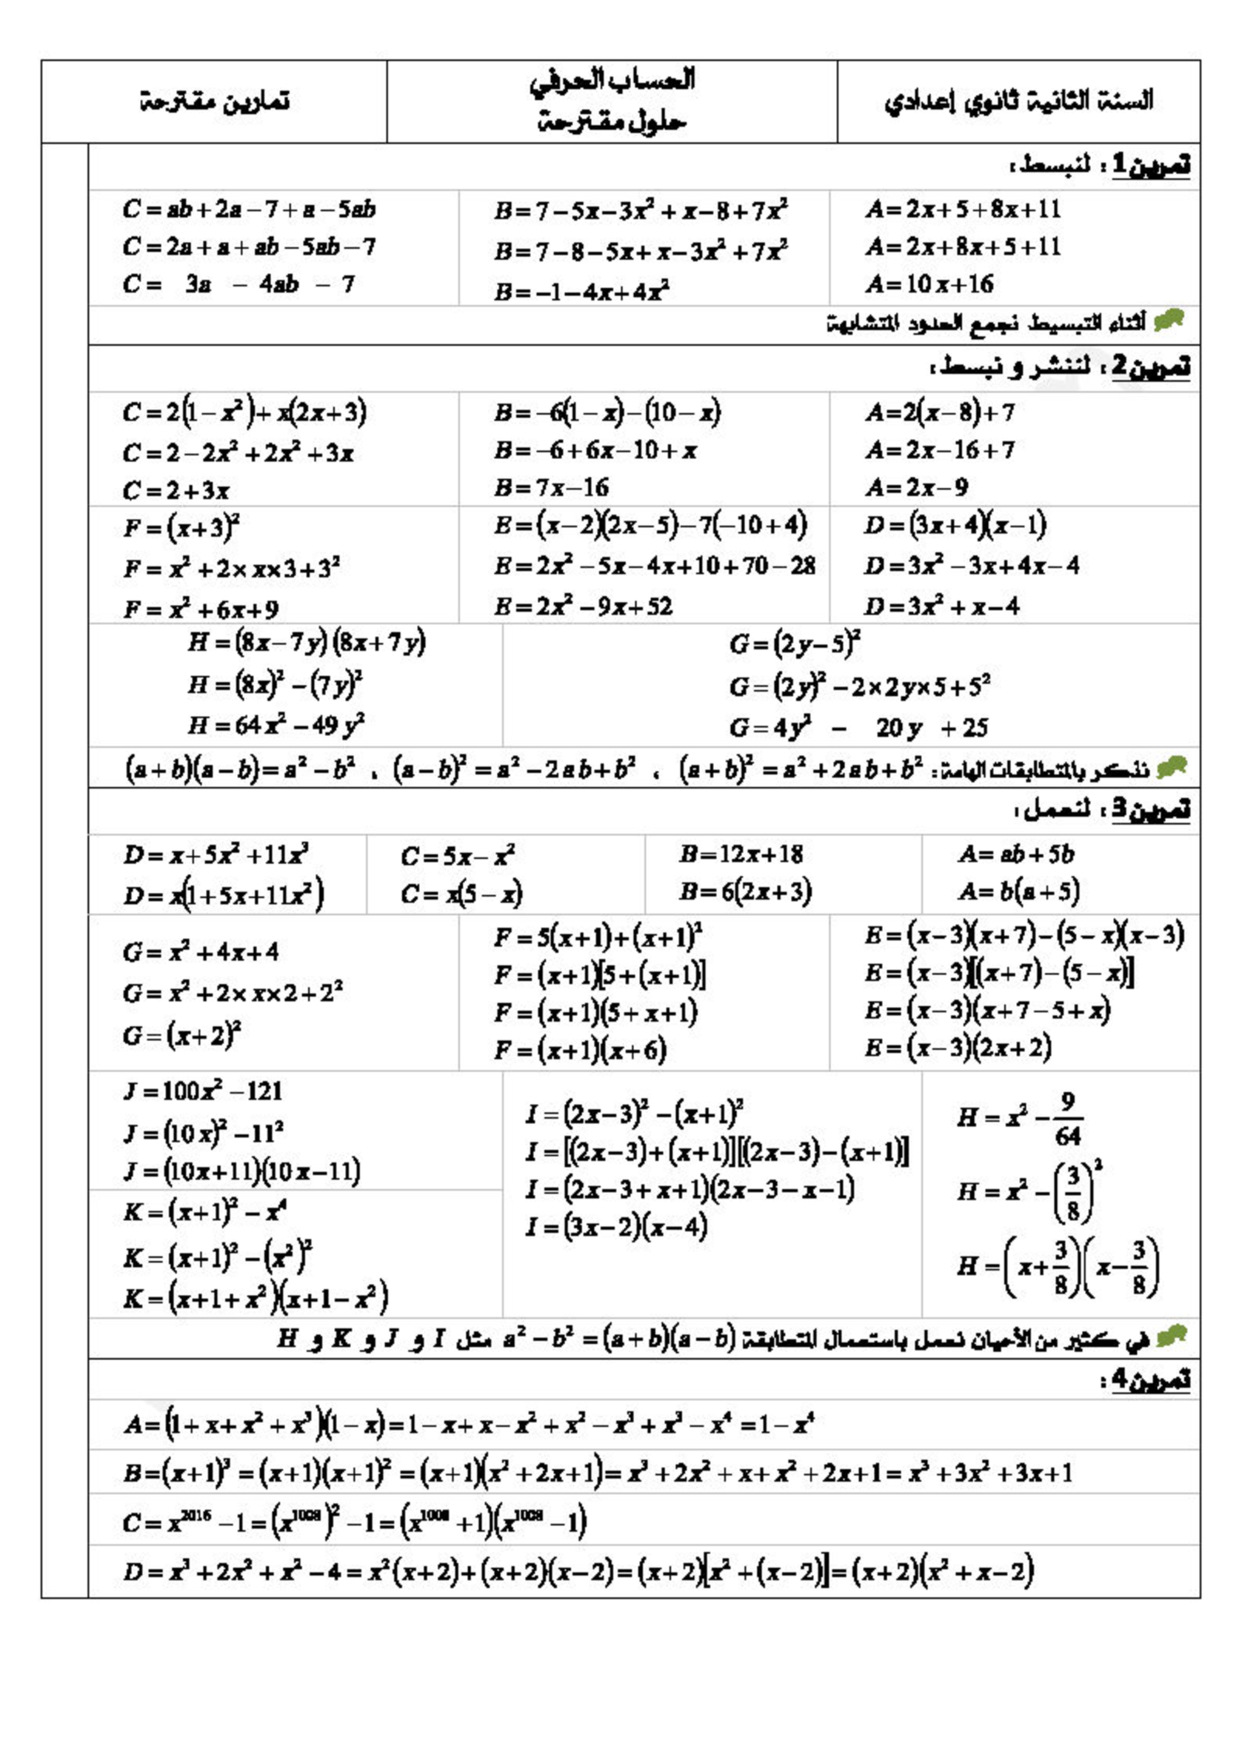 السنة الثانية ثانوي إعدادي
الحساب الحرفي
حلول مقترحة
تمارين مقترحة
تمرين1 : لنبسط :
A = 2x+5+8x+11
A = 2x+8x+5+11
A = 10x+16
B = 7−5x−3x²+x−8+7x²
B = 7−8−5x+x−3x²+7x²
B = −1−4x+4x²
C = ab+2a−7+a−5ab
C = 2a+a+ab−5ab−7
C = 3a − 4ab − 7
أثناء التبسيط نجمع الحدود المتشابهة
تمرين2 : لننشر و نبسط :
A=2(x−8)+7
A = 2x−16+7
A = 2x−9
B = −6(1−x)−(10−x)
B = −6+6x−10+x
B = 7x−16
C = 2(1−x²)+x(2x+3)
C = 2−2x²+2x²+3x
C = 2+3x
D = (3x+4)(x−1)
D = 3x²−3x+4x−4
D = 3x²+x−4
E = (x−2)(2x−5)−7(−10+4)
E = 2x²−5x−4x+10+70−28
E = 2x²−9x+52
F = (x+3)²
F = x²+2×x×3+3²
F = x²+6x+9
G = (2y−5)²
G = (2y)²−2×2y×5+5²
G = 4y² − 20y + 25
H = (8x−7y)(8x+7y)
H = (8x)²−(7y)²
H = 64x²−49y²
نذكر بالمتطابقات الهامة : (a+b)² = a²+2ab+b² ، (a−b)² = a²−2ab+b² ، (a+b)(a−b) = a²−b²
تمرين3 : لنعمل :
A = ab+5b
A = b(a+5)
B=12x+18
B = 6(2x+3)
C = 5x−x²
C = x(5−x)
D = x+5x²+11x³
D = x(1+5x+11x²)
E = (x−3)(x+7)−(5−x)(x−3)
E = (x−3)[(x+7)−(5−x)]
E = (x−3)(x+7−5+x)
E = (x−3)(2x+2)
F = 5(x+1)+(x+1)²
F = (x+1)[5+(x+1)]
F = (x+1)(5+x+1)
F = (x+1)(x+6)
G = x²+4x+4
G = x²+2×x×2+2²
G = (x+2)²
H = x² − 9/64
H = x² − (3/8)²
H = (x+3/8)(x−3/8)
I = (2x−3)²−(x+1)²
I = [(2x−3)+(x+1)][(2x−3)−(x+1)]
I = (2x−3+x+1)(2x−3−x−1)
I = (3x−2)(x−4)
J = 100x²−121
J = (10x)²−11²
J = (10x+11)(10x−11)
K = (x+1)²−x⁴
K = (x+1)²−(x²)²
K = (x+1+x²)(x+1−x²)
في كثير من الأحيان نعمل باستعمال المتطابقة a²−b² = (a+b)(a−b) مثل I و J و K و H
تمرين4 :
A = (1+x+x²+x³)(1−x) = 1−x+x−x²+x²−x³+x³−x⁴ = 1−x⁴
B=(x+1)³ = (x+1)(x+1)² = (x+1)(x²+2x+1) = x³+2x²+x+x²+2x+1 = x³+3x²+3x+1
C = x²⁰¹⁶−1 = (x¹⁰⁰⁸)²−1 = (x¹⁰⁰⁸+1)(x¹⁰⁰⁸−1)
D = x³+2x²+x²−4 = x²(x+2)+(x+2)(x−2) = (x+2)[x²+(x−2)] = (x+2)(x²+x−2)